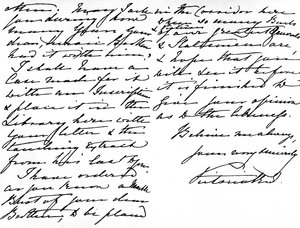 them. Many
your
many
dear
had it with him,
I shall have a
Case made for it
with an Inscription
& place it in the
Library here with
your letter & the
touching extract
from his last to you.
I have ordered
as you know a Marble
Bust of your dear
Brother, to be placed
in the Corridor here
where so many Busts
& of our Generals
& Statesmen are
& hope that you
will see it before
it is finished to
give your opinion
as to the likeness.
Believe me always,
yours very sincerely
Victoria R I